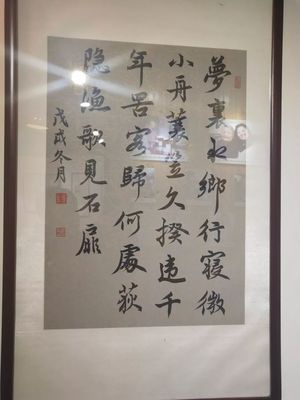 夢裏水鄉行寢微
小舟蓑笠久揆違千
年苦客歸何處荻
隐漁歌見石扉
戊戌冬月